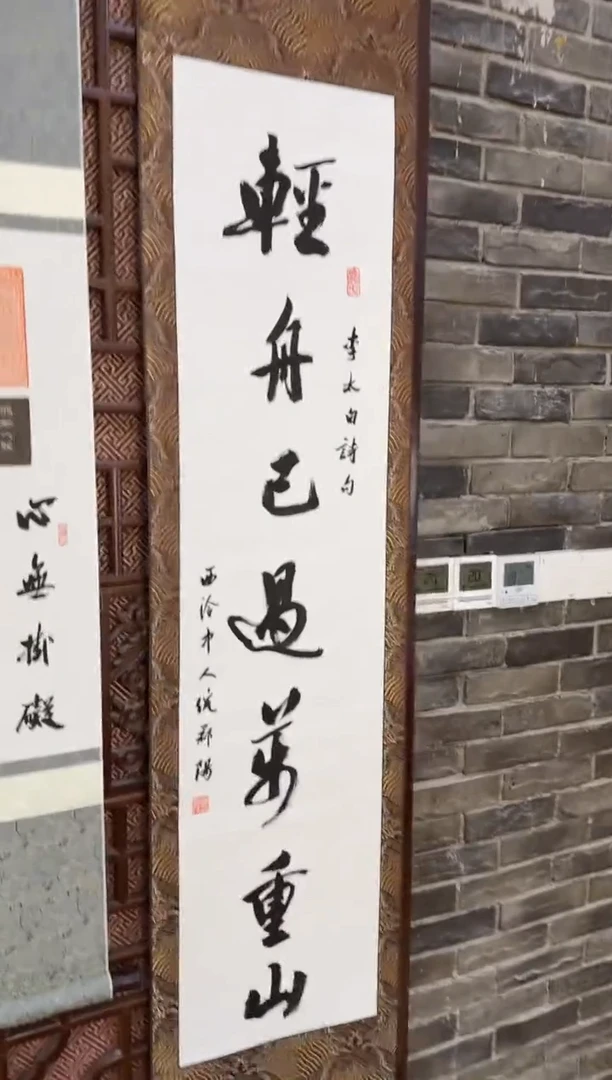 輕舟已過萬重山
李太白詩句
西泠中人
心無掛礙
20